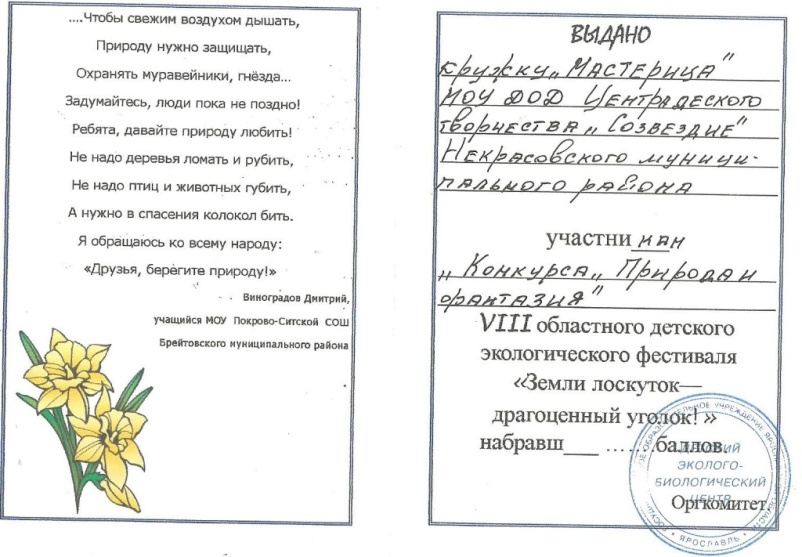 ....Чтобы свежим воздухом дышать,
Природу нужно защищать,
Охранять муравейники, гнёзда...
Задумайтесь, люди пока не поздно!
Ребята, давайте природу любить!
Не надо деревья ломать и рубить,
Не надо птиц и животных губить,
А нужно в спасения колокол бить.
Я обращаюсь ко всему народу:
«Друзья, берегите природу!»
Виноградов Дмитрий,
учащийся МОУ Покрово-Ситской СОШ
Брейтовского муниципального района
ВЫДАНО
кружку „Мастерица"
МОУ ДОД Центра детского
творчества „Созвездие"
Некрасовского муници-
пального района
участникам
„Конкурса „Природа и
фантазия"
VIII областного детского
экологического фестиваля
«Земли лоскуток—
драгоценный уголок! »
набравш___ ........баллов.
ДЕТСКИЙ
ЭКОЛОГО-
БИОЛОГИЧЕСКИЙ
ЦЕНТР
Оргкомитет.
ОБРАЗОВАТЕЛЬНОЕ УЧРЕЖДЕНИЕ
ЯРОСЛАВЛЬ